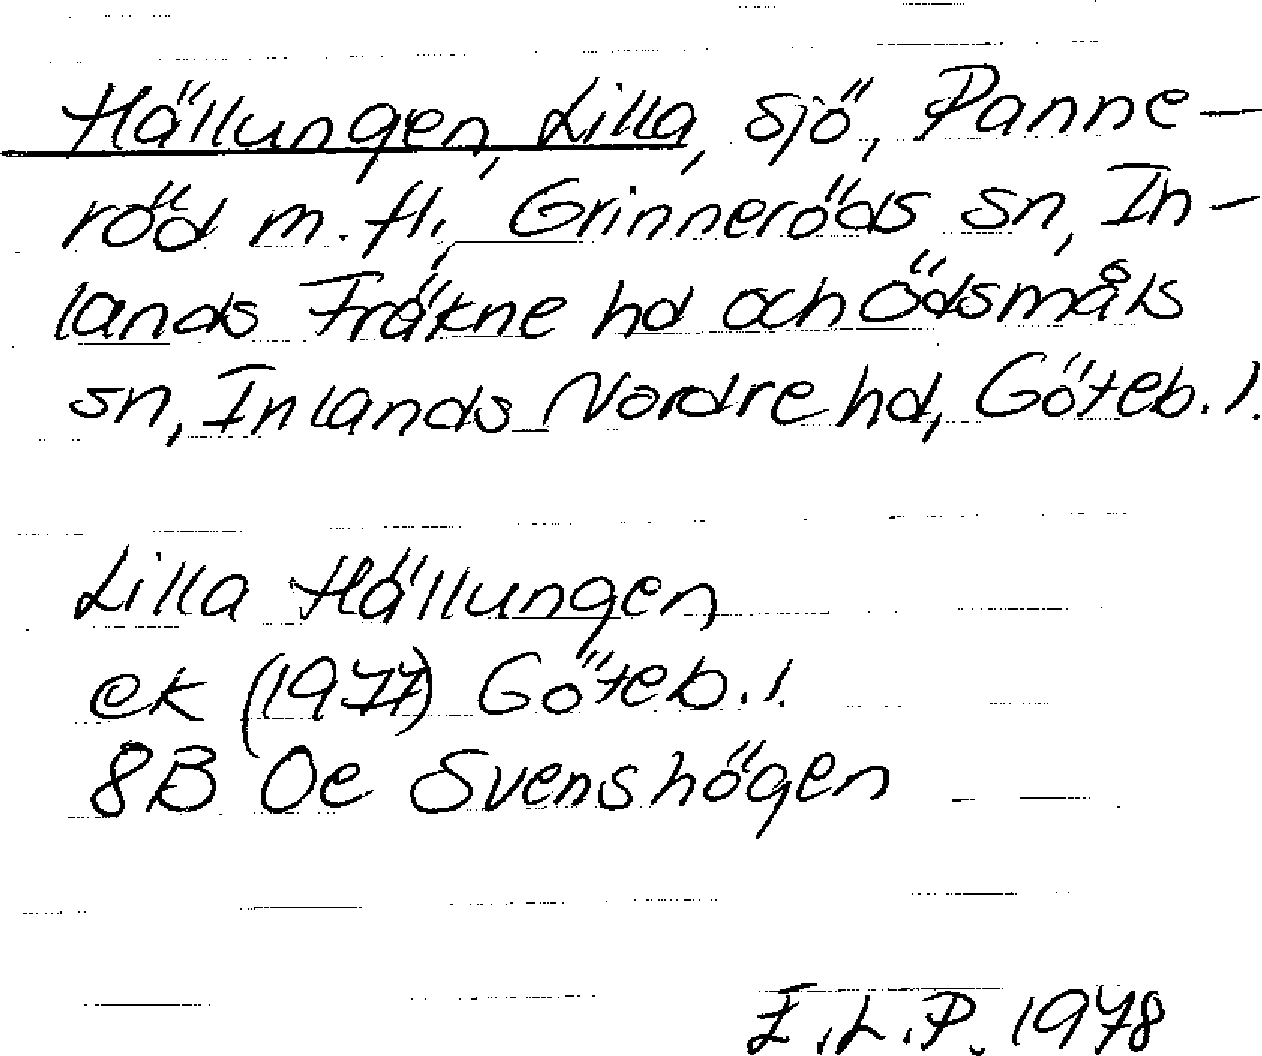 Hällungen, Lilla, sjö, Panne-
röd m. fl., Grinneröds sn, In-
lands Fräkne hd och Ödsmåls
sn, Inlands Nordre hd, Göteb. l.
Lilla Hällungen
ek (1977) Göteb. l.
8B 0e Svenshögen
I.L.P. 1978